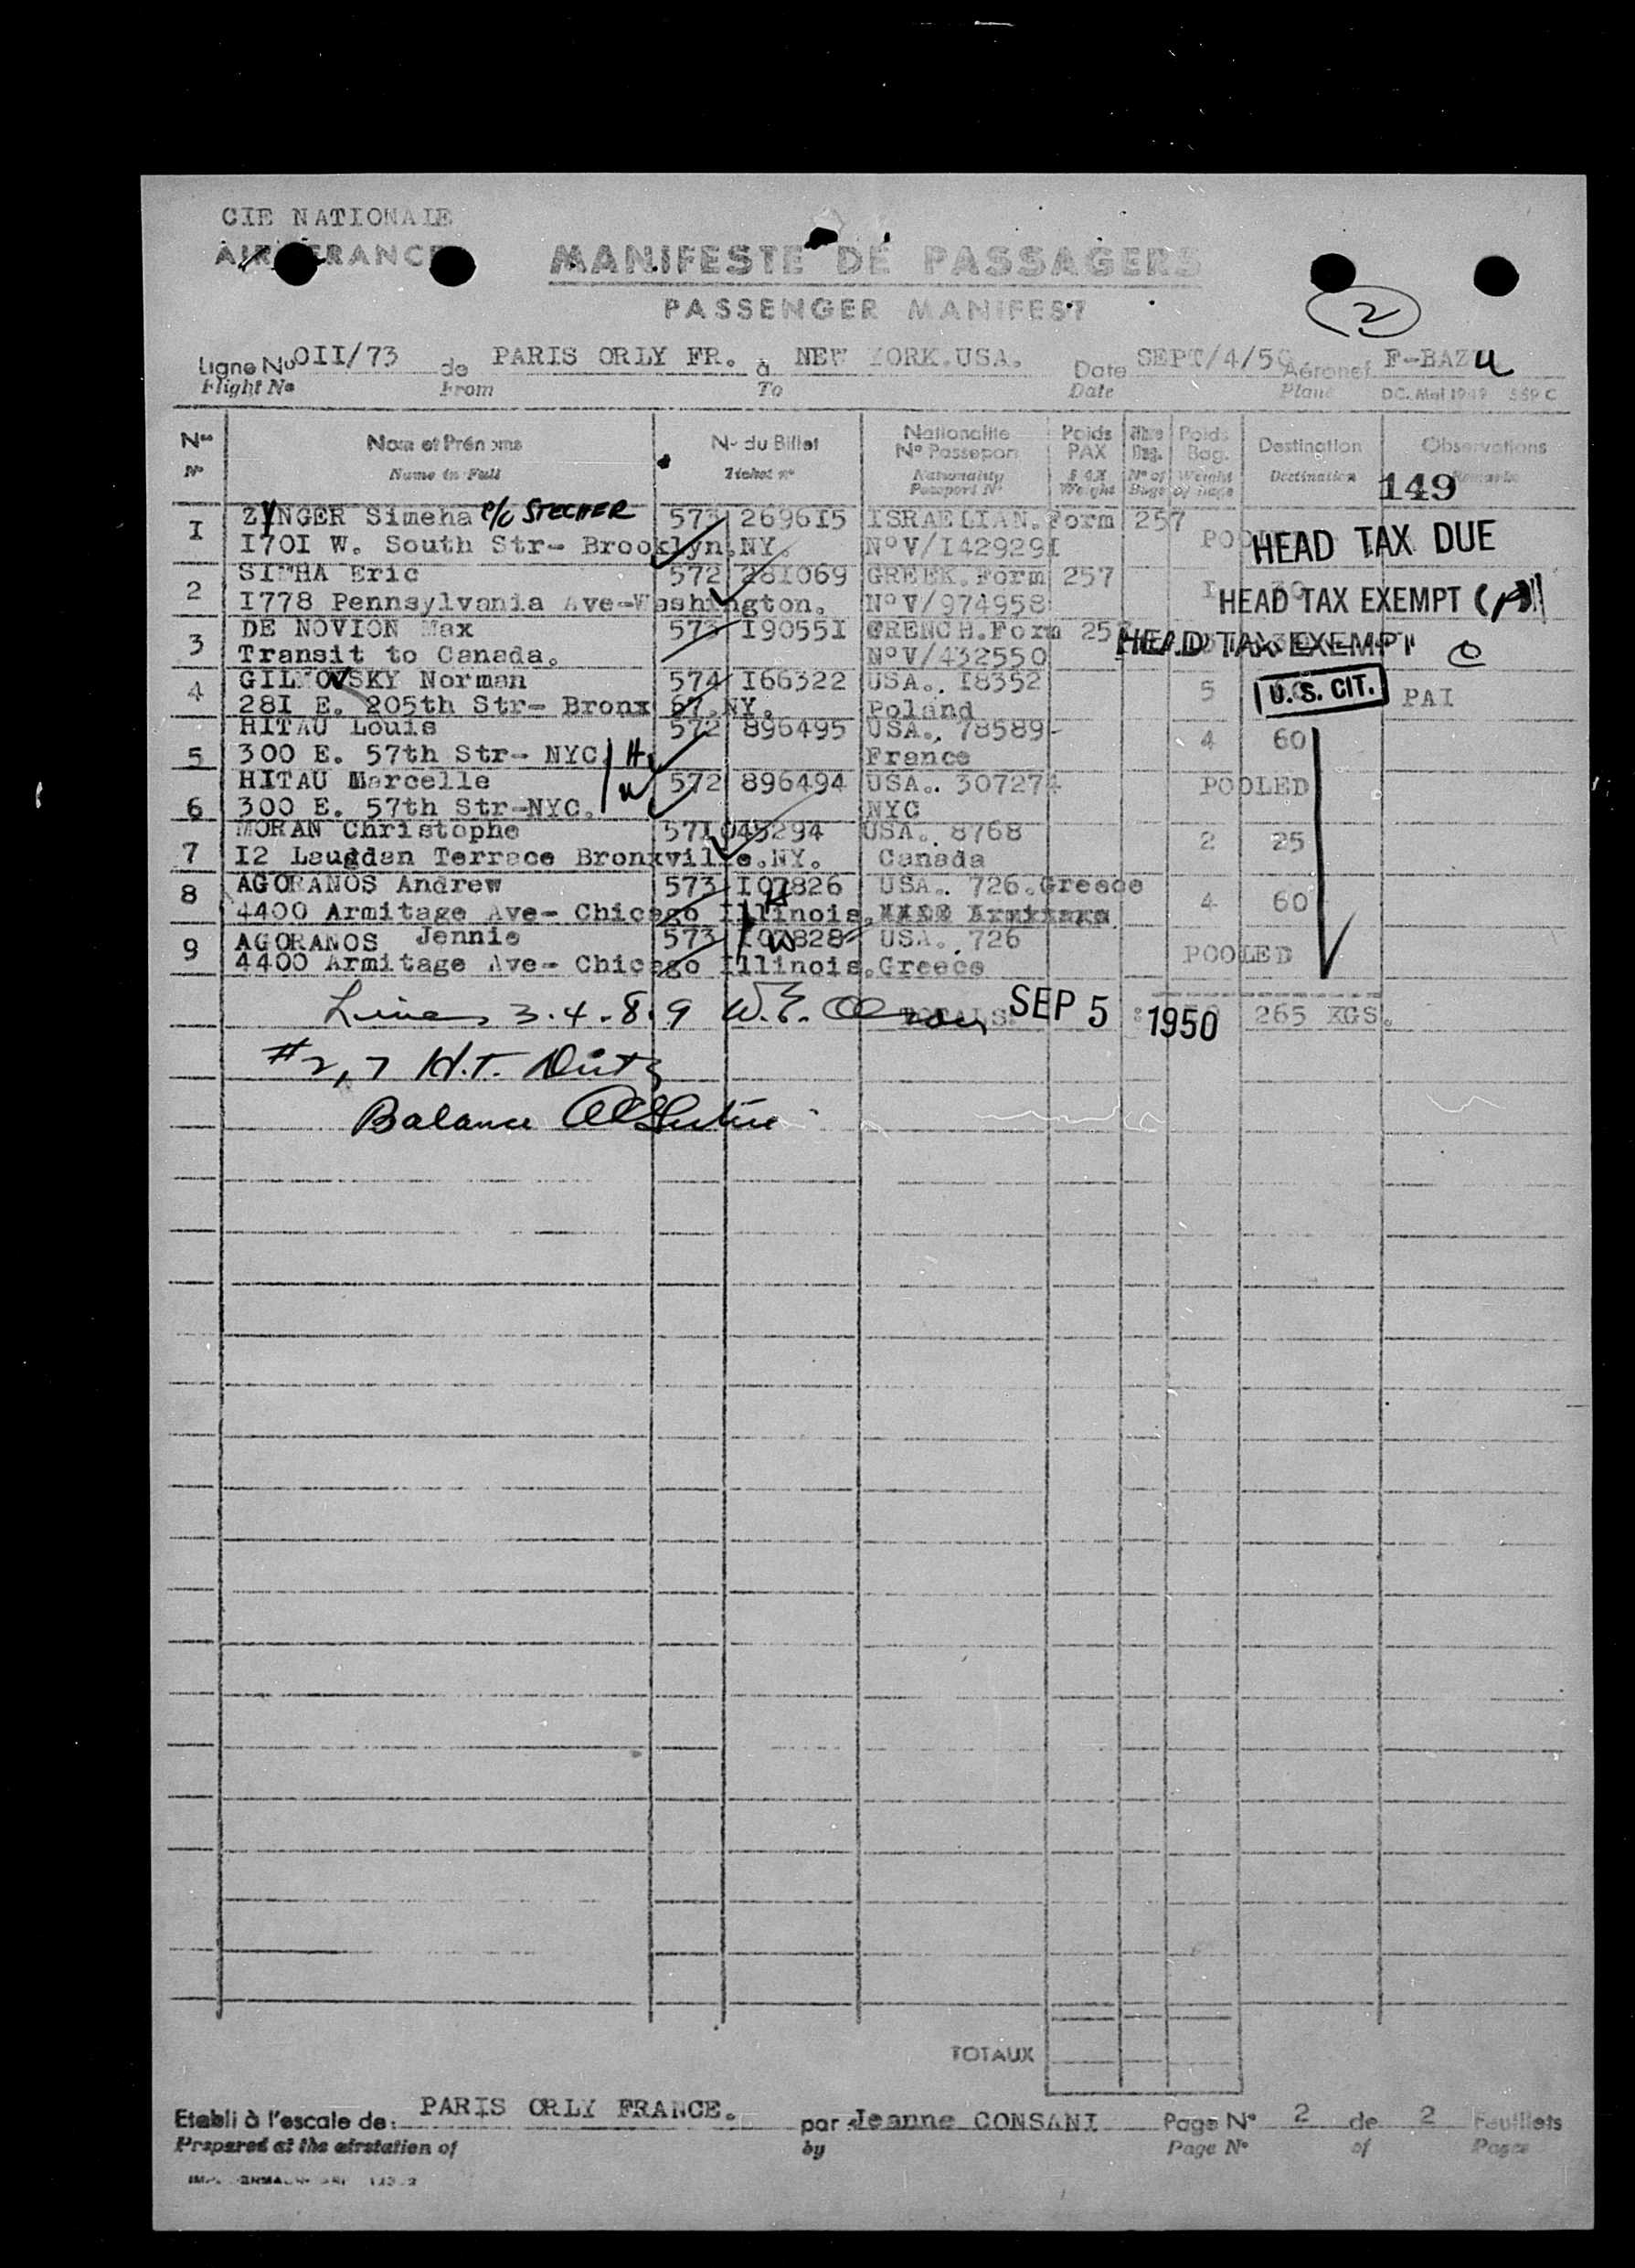 CIE NATIONALE
AIR FRANCE
MANIFESTE DE PASSAGERS
PASSENGER MANIFEST
2
Ligne No OII/73 de PARIS ORLY FR. à NEW YORK.USA. Date SEPT/4/50 Aéronef F-BAZU
Flight No From To Date Plane DC. Mai 1949 559 C
Nos Nom et Prénoms No du Billet Nationalité No Passeport Poids PAX Nbre Bag. Poids Bag. Destination Observations
No Name in Full Ticket no Nationality Passport No PAX Weight No of Bags Weight of bags Destination Remarks
149
I ZYNGER Simeha P/C STECHER 573 2696I5 ISRAELIAN. Form 257
I70I W. South Str- Brooklyn.NY. No V/I42929I HEAD TAX DUE
2 Eric 572 28I069 GREEK. Form 257
I778 Pennsylvania Ave-Washington. No V/974958 I HEAD TAX EXEMPT
3 DE NOVION Max 573 I9055I FRENCH. Form 257 HEAD TAX EXEMPT
Transit to Canada. No V/432550
4 Norman 574 I66322 USA.. I8352 5 U.S. CIT. PAI
28I E. 205th Str- Bronx 67.NY. Poland
HITAU Louis 572 896495 USA.. 78589-
5 300 E. 57th Str- NYC. H France 4 60
HITAU Marcelle 572 896494 USA.. 307274 POOLED
6 300 E. 57th Str-NYC. W NYC
MORAN Christophe 57I 045294 USA.. 8768 2 25
7 I2 Terrace Bronxville.NY. Canada
8 AGORANOS Andrew 573 I07826 USA.. 726.Greece 4 60
4400 Armitage Ave- Chicago Illinois. H
9 AGORANOS Jennie 573 I07828 USA.. 726 POOLED
4400 Armitage Ave- Chicago Illinois. W Greece
Lines 3.4.8.9 W.E. TOTALS: SEP 5 1950 265 KGS.
#2,7 H.T.
Balance
TOTAUX
Etabli à l'escale de: PARIS ORLY FRANCE. par Jeanne CONSANI Page No 2 de 2 Feuillets
Prepared at the airstation of by Page No of Pages